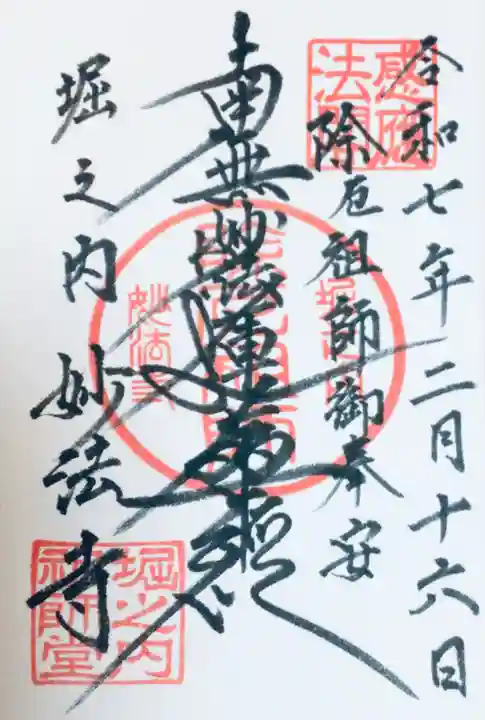 令和七年二月十六日
除厄祖師御奉安
南無妙法蓮華経
堀之内 妙法寺
堀之内
祖師堂
妙法寺